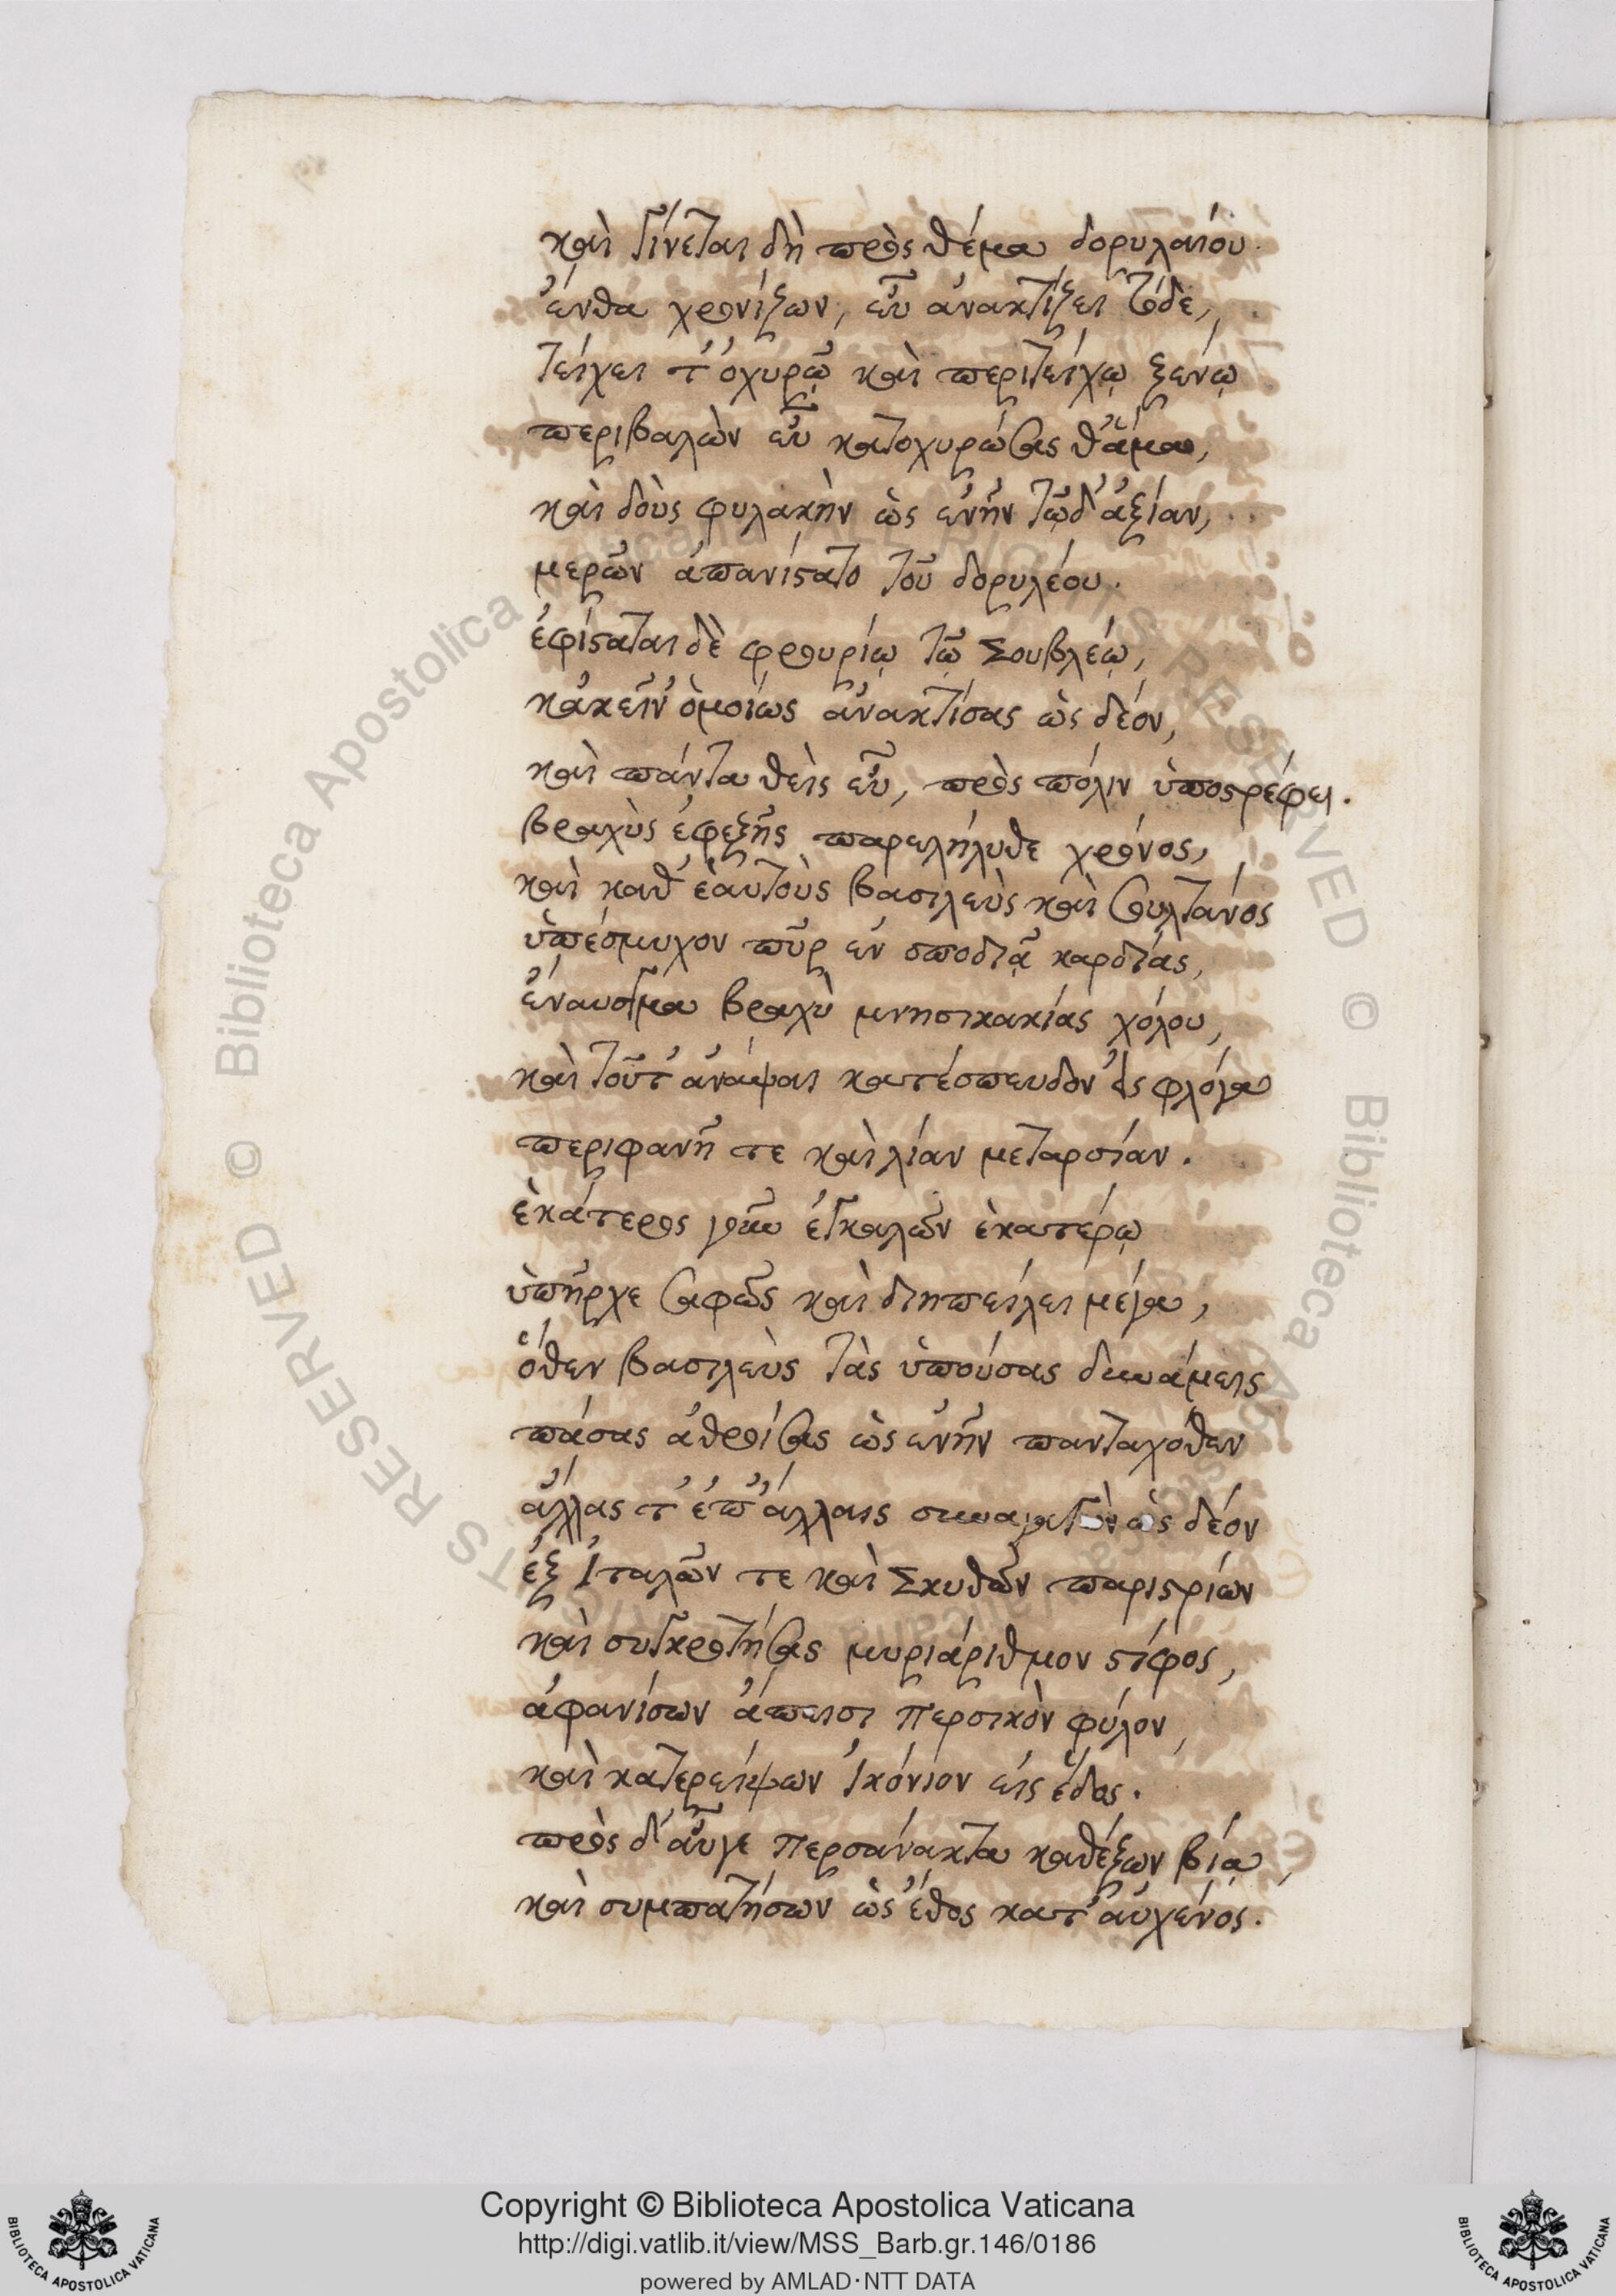 καὶ γίνεται δὴ πρὸς θέμα δορυλαιόυ.
ἔνθα χρονίζων, εὖ ἀνακτίζει τόδε,
τείχει τ' ὀχυρῷ καὶ περιτείχῳ ξενῳ
περιβαλὼν εὖ κατοχυρώσας θ' ἅμα,
καὶ δοὺς φυλακὴν ὡς ἐνῆν τῷδ' ἀξίαν,
μερῶν ἀπανίστατο τοῦ δορυλέου.
ἐφίσταται δὲ φρουρίῳ τῷ Σουβλέῳ,
κἀκεῖν' ὁμοίως ἀνακτίσας ὡς δέον,
καὶ πάντα θεὶς εὖ, πρὸς πόλιν ὑποστρέφει.
βραχὺς ἐφεξῆς παρεληλυθε χρόνος,
καὶ καθ' ἑαυτοὺς βασιλεὺς καὶ σουλτάνος
ὑπέσμυχον πῦρ ἐν σποδιᾷ καρδίας,
ἔναυσμα βραχὺ μνησικακίας χόλου,
καὶ τοῦτ' ἀνάψαι κατέσπευδον εἰς φλόγα
περιφανῆ τε καὶ λίαν μεταρσίαν.
ἑκάτερος γοῦν ἐγκαλῶν ἑκατέρῳ
ὑπῆρχε σαφῶς καὶ διηπείλει μέγα,
ὅθεν βασιλεὺς τὰς ὑπούσας δυνάμεις
πάσας ἀθροίσας ὡς ἐνῆν πανταχόθεν
ἄλλας τ' ἐπ' ἄλλαις συναγαγὼν ὡς δέον
ἐξ Ἰταλῶν τε καὶ Σκυθῶν παριστρίων
καὶ συγκροτήσας μυριάριθμον στίφος,
ἀφανίσων ἄπεισι περσικὸν φύλον,
καὶ κατερείψων Ἰκόνιον εἰς ἕδος.
πρὸς δ' αὖγε περσάνακτα καθέξων βίᾳ,
καὶ συμπατήσων ὡς ἔθος κατ' αὐχένος.
Copyright © Biblioteca Apostolica Vaticana
http://digi.vatlib.it/view/MSS_Barb.gr.146/0186
powered by AMLAD·NTT DATA